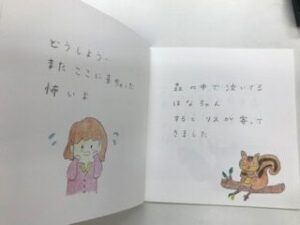 どうしよう…
また ここにまよった
怖いよ
森の中で泣いてる
はなちゃん
すると リスが寄って
きました